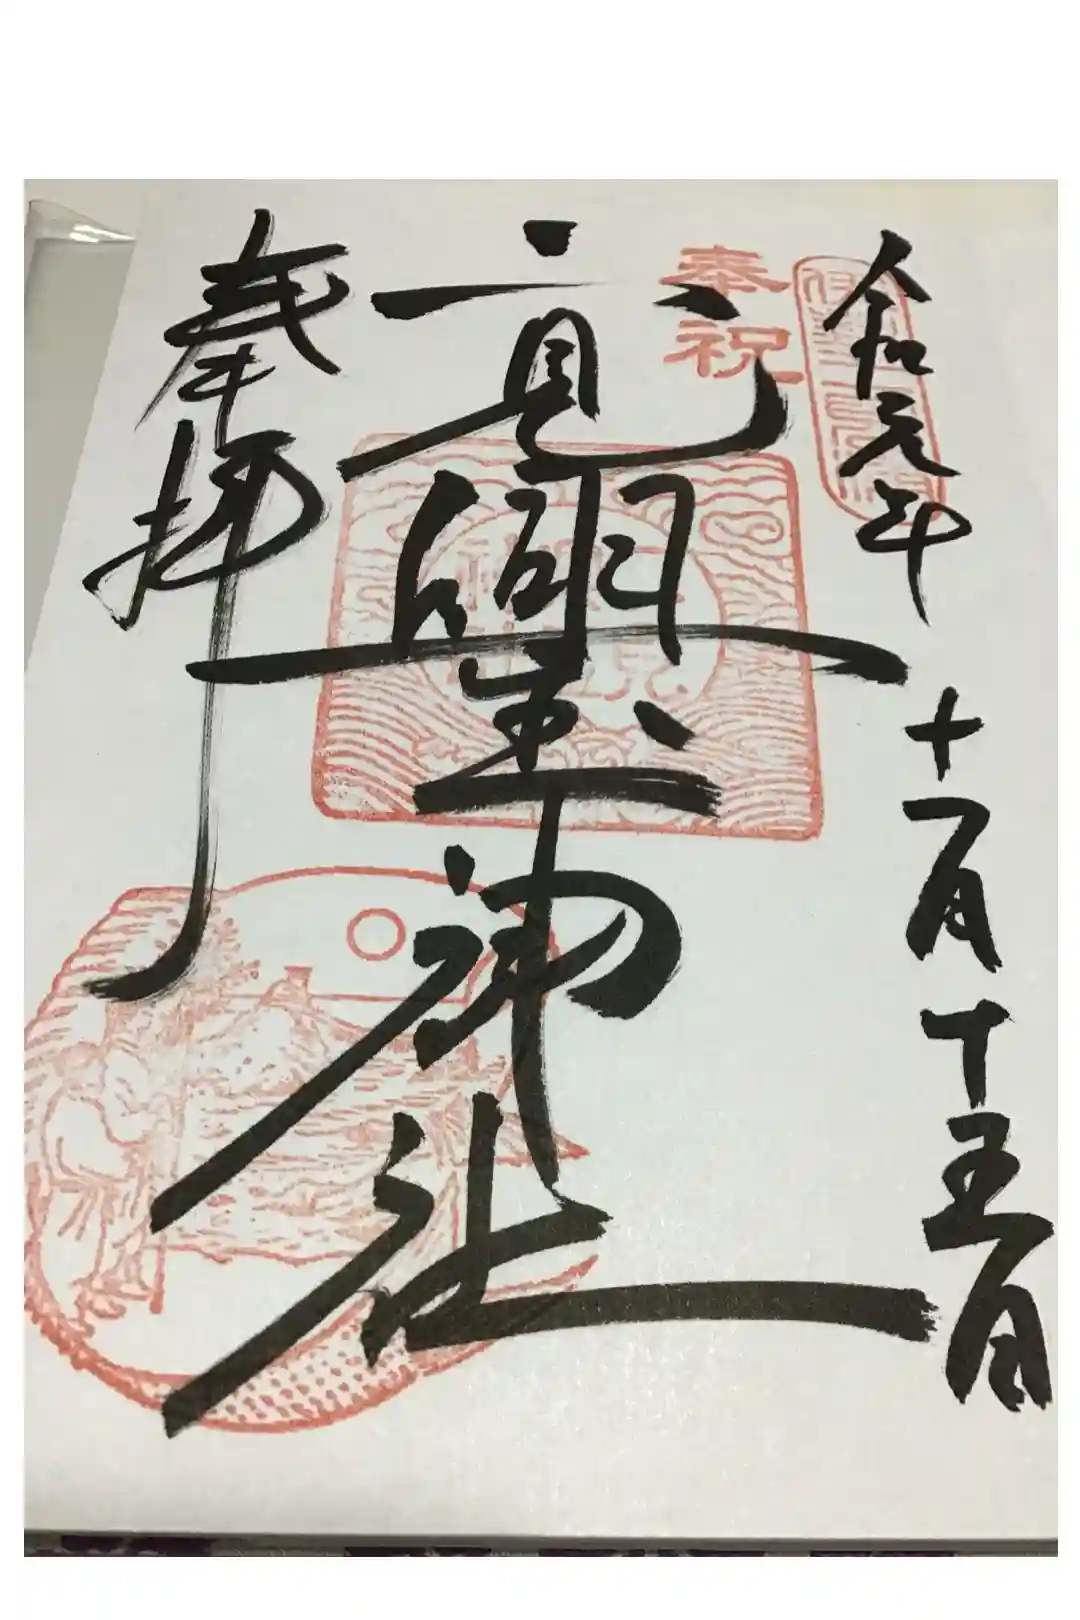 令和元年十一月十五日
奉祝
二見興玉神社
奉拝